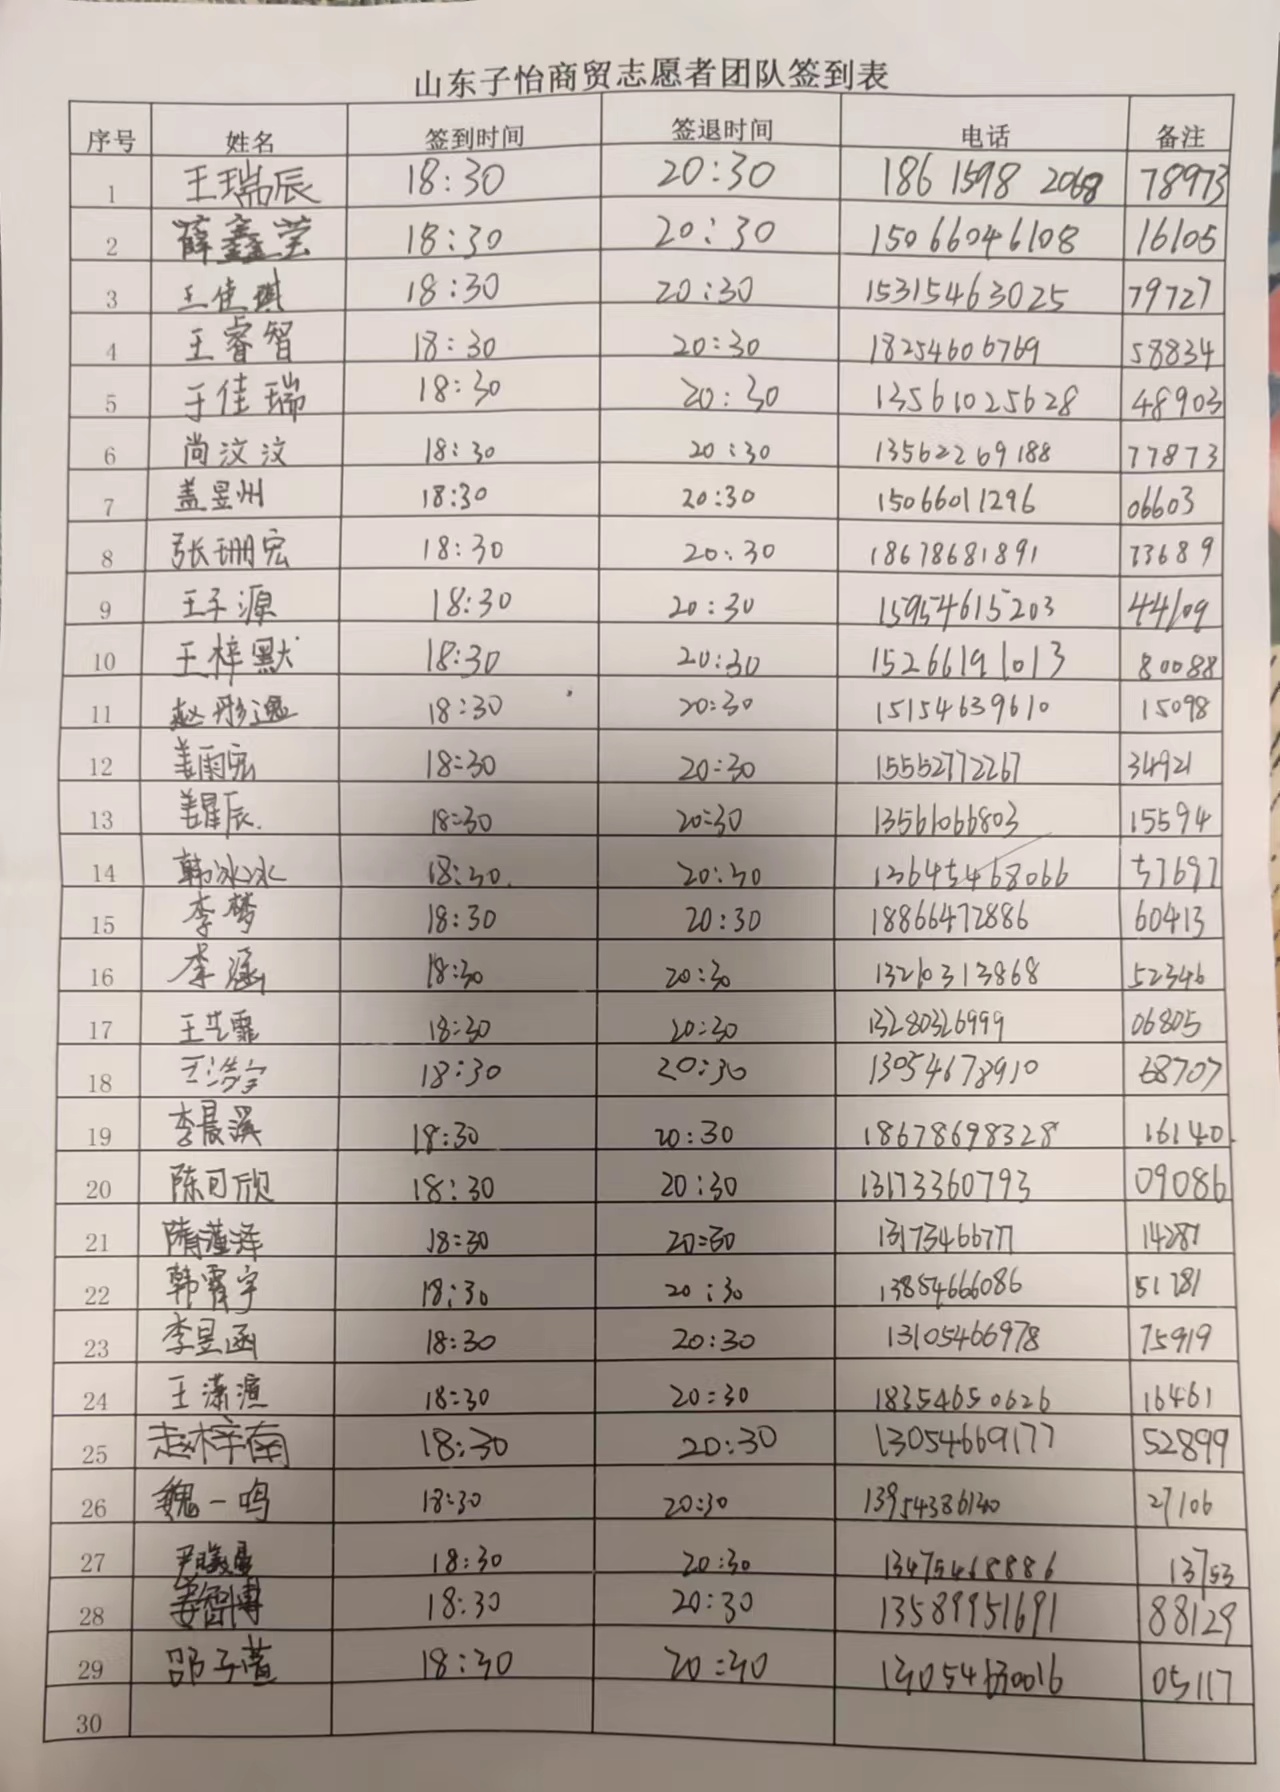 山东子怡商贸志愿者团队签到表
序号 姓名 签到时间 签退时间 电话 备注
1 王瑞辰 18:30 20:30 186 1598 2068 78973
2 薛鑫莹 18:30 20:30 15066046108 16105
3 王佳琪 18:30 20:30 15315463025 79727
4 王睿智 18:30 20:30 18254606769 58834
5 于佳瑞 18:30 20:30 13561025628 48903
6 尚汶汶 18:30 20:30 13562269188 77873
7 盖昱州 18:30 20:30 15066011296 06603
8 张珊宏 18:30 20:30 18678681891 73689
9 王子源 18:30 20:30 15954615203 44109
10 王梓默 18:30 20:30 15266191013 80088
11 赵彤逸 18:30 20:30 15154639610 15098
12 姜雨宏 18:30 20:30 15552772267 34921
13 姜星辰 18:30 20:30 13561066803 15594
14 韩冰冰 18:30 20:30 13645468066 57697
15 李梦 18:30 20:30 18866472886 60413
16 李涵 18:30 20:30 13210313868 52346
17 王芝霏 18:30 20:30 13280326999 06805
18 王浩宇 18:30 20:30 13054678910 68707
19 李晨溪 18:30 20:30 18678698328 16140
20 陈可欣 18:30 20:30 13173360793 09086
21 隋瑾泽 18:30 20:30 14287
22 韩霄宇 18:30 20:30 13854666086 51781
23 李昱函 18:30 20:30 13105466978 75919
24 王潇渲 18:30 20:30 18354650626 16461
25 赵梓南 18:30 20:30 13054669177 52899
26 魏一鸣 18:30 20:30 13954386140 27106
27 18:30 20:30 13475468886 13753
28 姜智博 18:30 20:30 13589951691 88129
29 邵子萱 18:30 20:30 05117
30